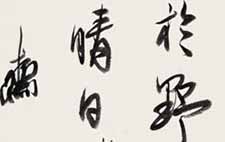 於野
晴日